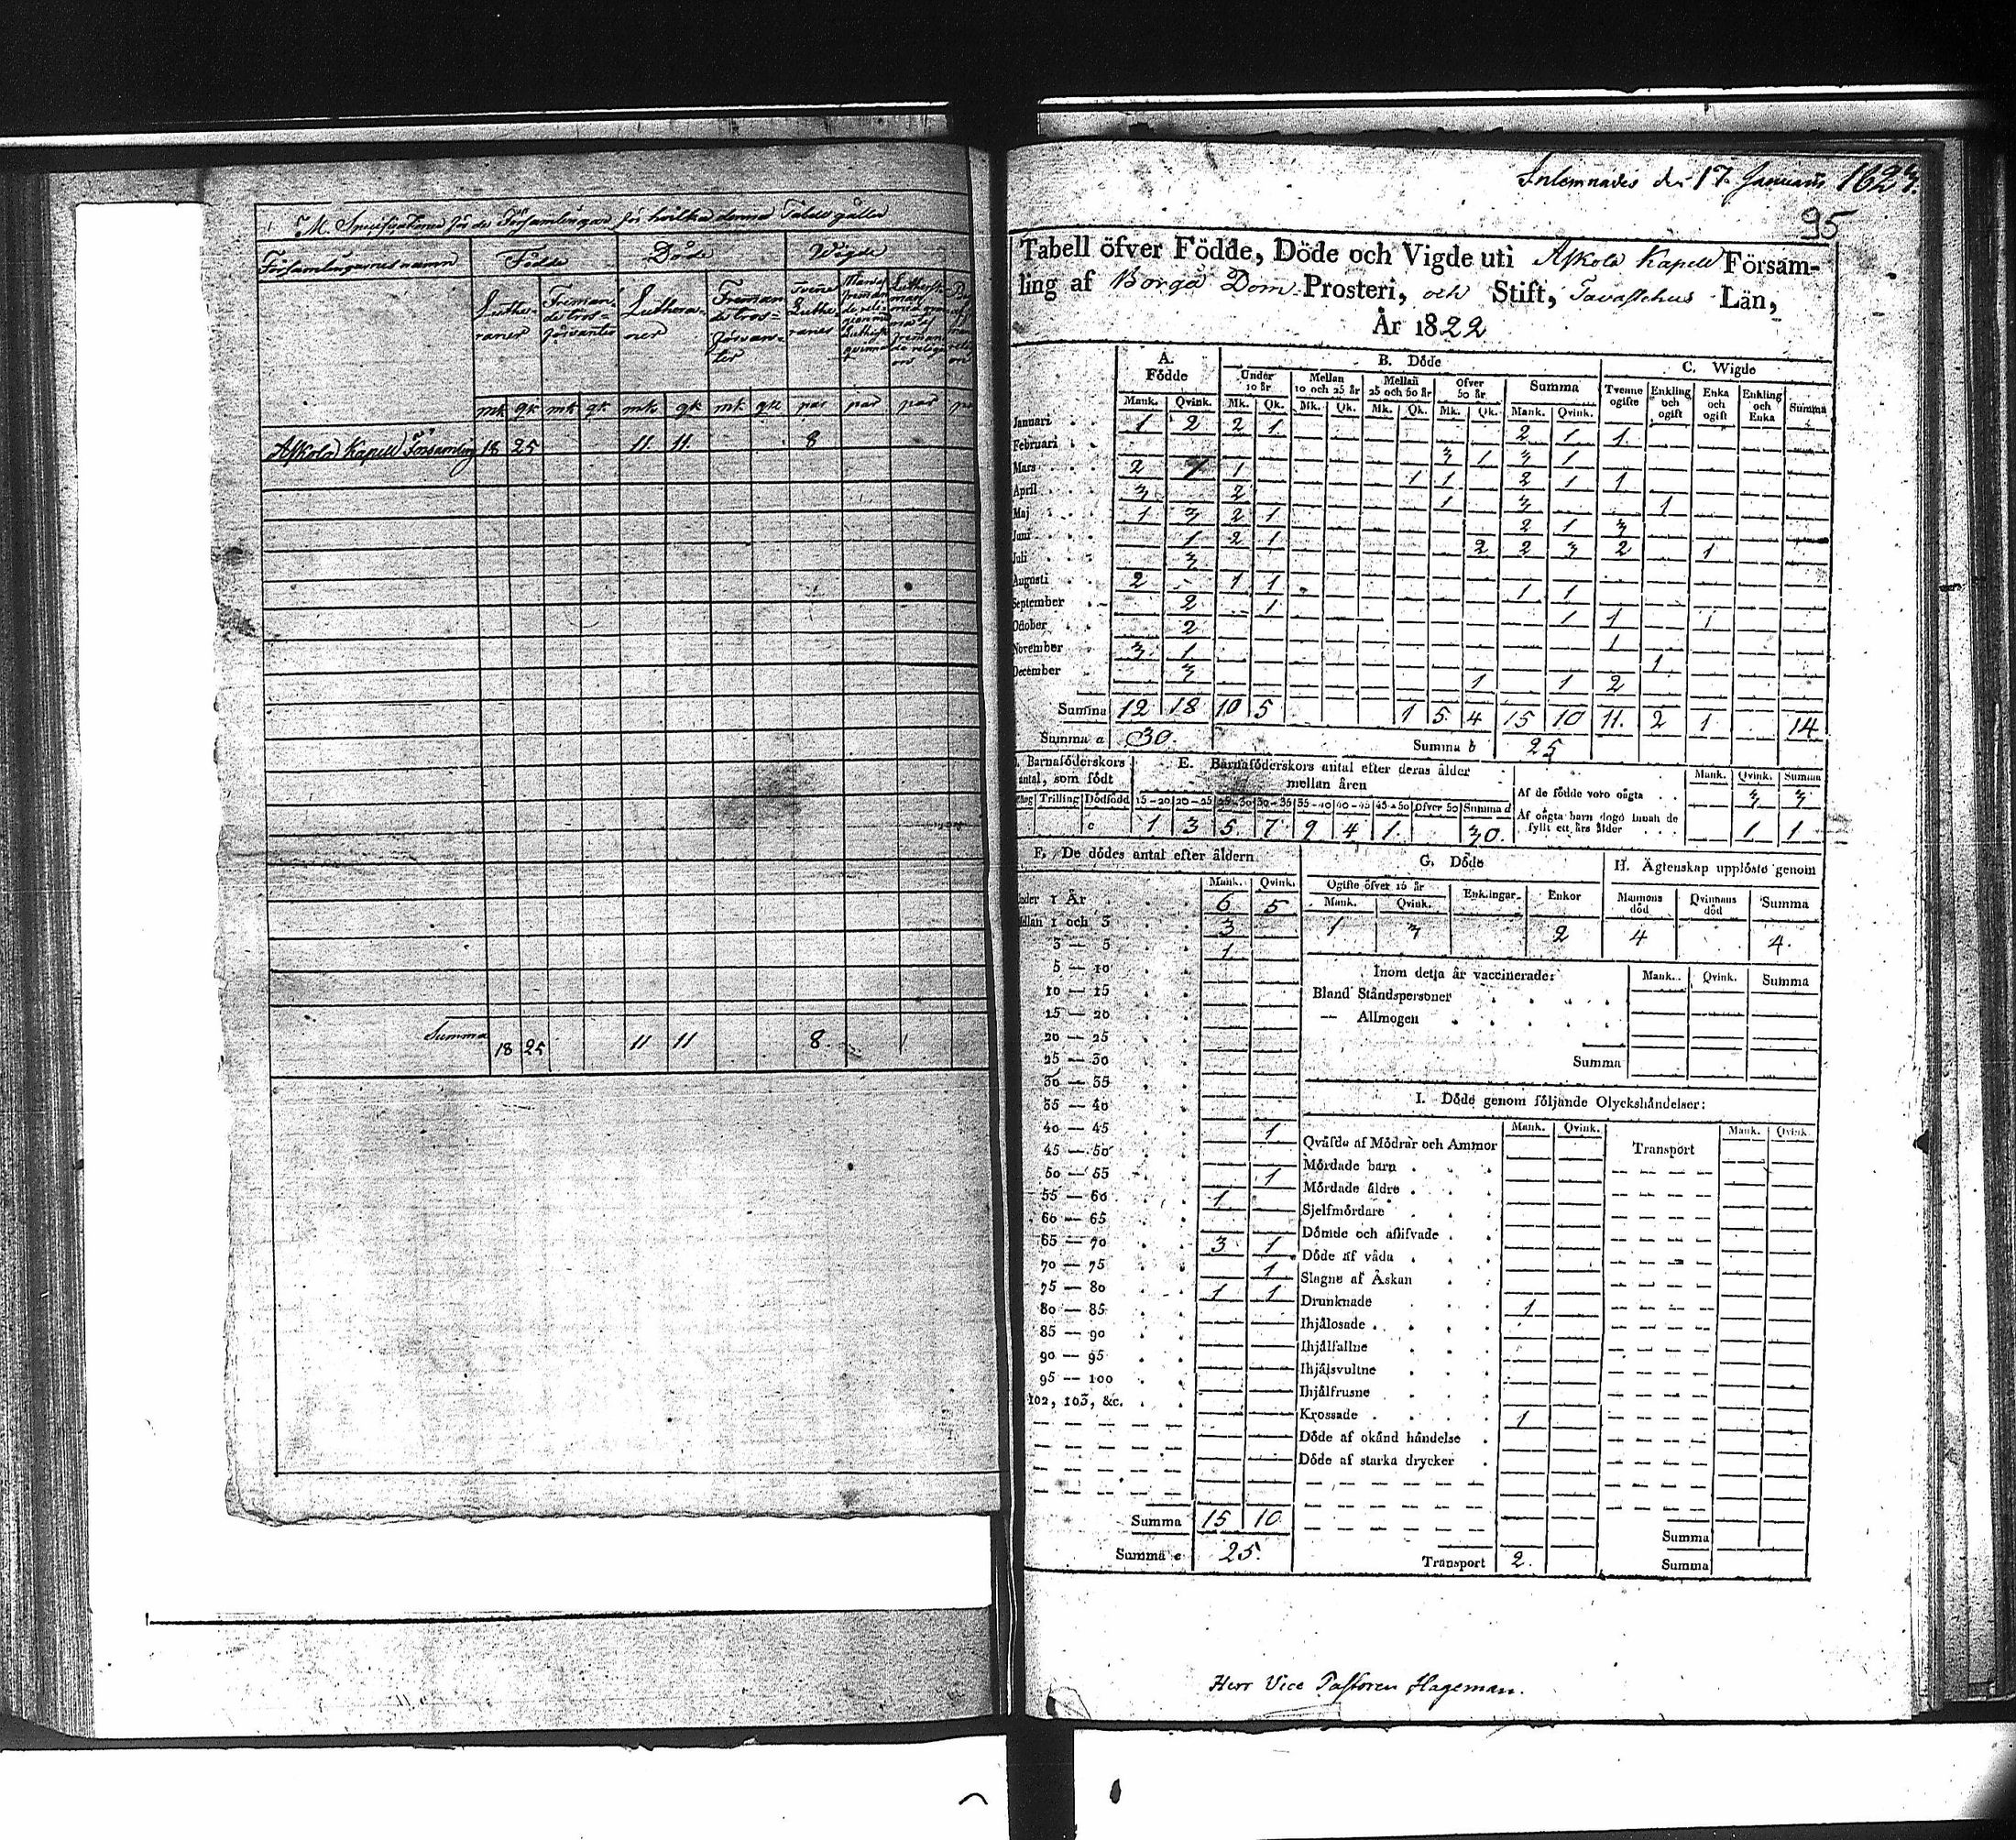 M. Specification för de Församlingar för hvilka denna Tabell gäller
Församlingarnes namn Födde Döde Wigde
Luthe-raner Fremman-de tros-förvanter Luthera-ner Fremman-de tros-förvan-ter Tvenne Luthe-raner
mk qk mk qk mk qk mk qk par par par
Askola Kapell Församling 18 25 11. 11. 8
Summa 18 25 11 11 8.
Inlemnades den 17 Januarii 1823.
95
Tabell öfver Födde, Döde och Vigde uti Askola Kapell Församling
af Borgå Dom-Prosteri, och Stift, Tavastehus Län,
År 1822
A. Födde B. Döde C. Wigde
Under 10 år Mellan 10 och 25 år Mellan 25 och 50 år Öfver 50 år Summa Tvenne ogifte Enkling och ogift Enka och ogift Enkling och Enka Summa
Mank. Qvink. Mk. Qk. Mk. Qk. Mk. Qk. Mk. Qk. Mank. Qvink.
Januari 1 2 2 1 2 1 1
Februari 3 1 3 1
Mars 2 1 1 1 1 2 1 1
April 3 2 1 3 1
Maj 1 3 2 1 2 1 3
Juni 1 2 1 2 2 3 2 1
Juli 3
Augusti 2 1 1 1 1
September 2 1 1 1
October 2 1
November 3 1 1
December 3 1 1 2
Summa 12 18 10 5 1 5 4 15 10 11. 2 1 14
Summa a 30. Summa b 25
D. Barnaföderskors antal, som födt E. Barnaföderskors antal efter deras ålder mellan åren
Mank. Qvink. Summa
Trilling Dödfödd 15-20 20-25 25-30 30-35 35-40 40-45 45-50 Öfver 50 Summa d
Af de födde voro oägta 3 3
c 1 3 5 7 9 4 1. 30.
Af oägta barn dogo innan de fyllt ett års ålder 1 1
F. De dödes antal efter åldern. G. Döde H. Ägtenskap upplöste genom
Mank. Qvink. Ogifte öfver 15 år Enklingar Enkor Mannens död Qvinnans död Summa
Under 1 År 6 5 Mank. Qvink.
Mellan 1 och 3 3 1 3 2 4 4.
3 — 5 1
5 — 10 Inom detta år vaccinerade: Mank. Qvink. Summa
10 — 15 Bland Ståndspersoner
15 — 20 — Allmogen
20 — 25
25 — 30 Summa
30 — 35
35 — 40 I. Döde genom följande Olyckshändelser:
40 — 45 1 Mank. Qvink. Mank. Qvink.
45 — 50 Qväfde af Mödrar och Ammor Transport
50 — 55 1 Mördade barn
55 — 60 1 Mördade äldre
60 — 65 Sjelfmördare
65 — 70 3 1 Dömde och aflifvade
70 — 75 1 Döde af våda
75 — 80 1 1 Slagne af Åskan
80 — 85 Drunknade 1
85 — 90 Ihjälosade
90 — 95 Ihjälfallne
95 — 100 Ihjälsvultne
102, 103, &c. Ihjälfrusne
Krossade 1
Döde af okänd händelse
Döde af starka drycker
Summa 15 10 Summa
Summa e 25. Transport 2. Summa
Herr Vice Pastoren Hageman.